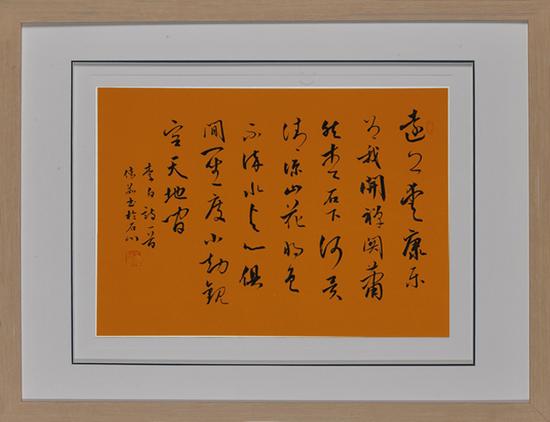 遠公愛康乐
为我開禪関蕭
然松石下何異
清凉山花将色
不染水与心俱
閒一坐度小劫観
空天地間
李白詩一首
书於石川